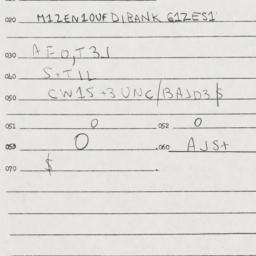 020 M1ZEN10UFDIBANK 61ZES1
030 AFO,T3J
040 S+T1L
050 CW1S+3UNC/BAJD3$
051 0 052 0
053 0 060 AJS+
070 $